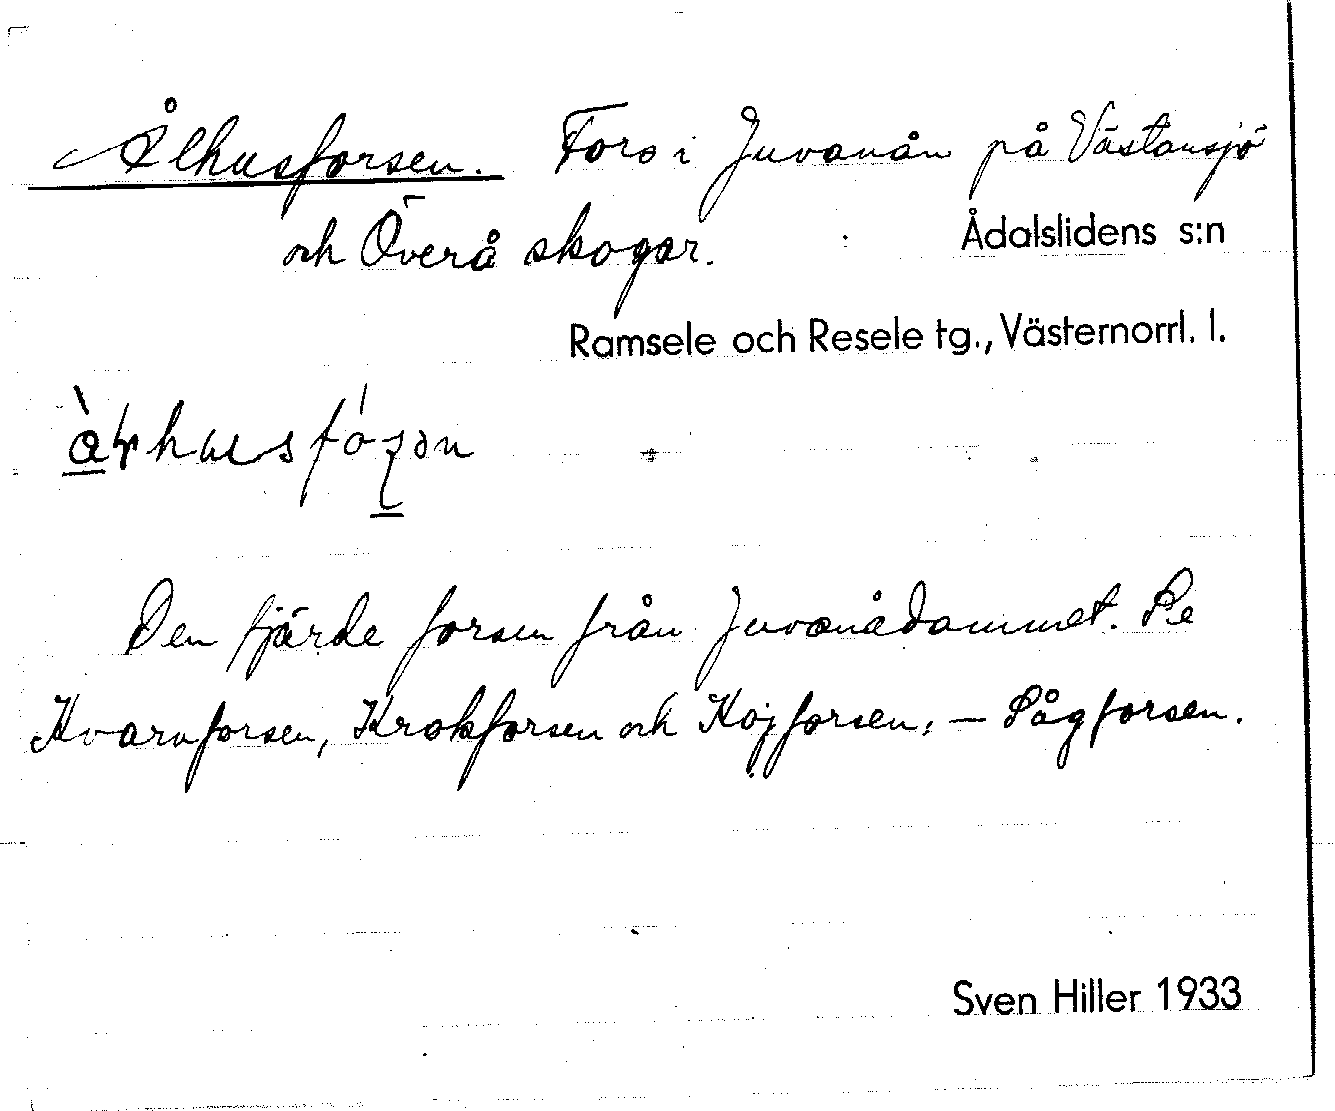 Ålhusforsen. Fors i Juvanån på Västansjö
och Överå skogar.
Ådalslidens s:n
Ramsele och Resele tg., Västernorrl. l.
Den fjärde forsen från Juvanådammet. Se
Kvarnforsen, Krokforsen och Kojforsen, – Sågforsen.
Sven Hiller 1933